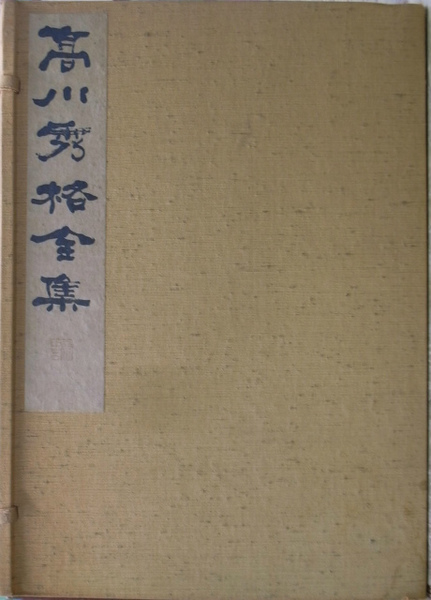 高川秀格全集